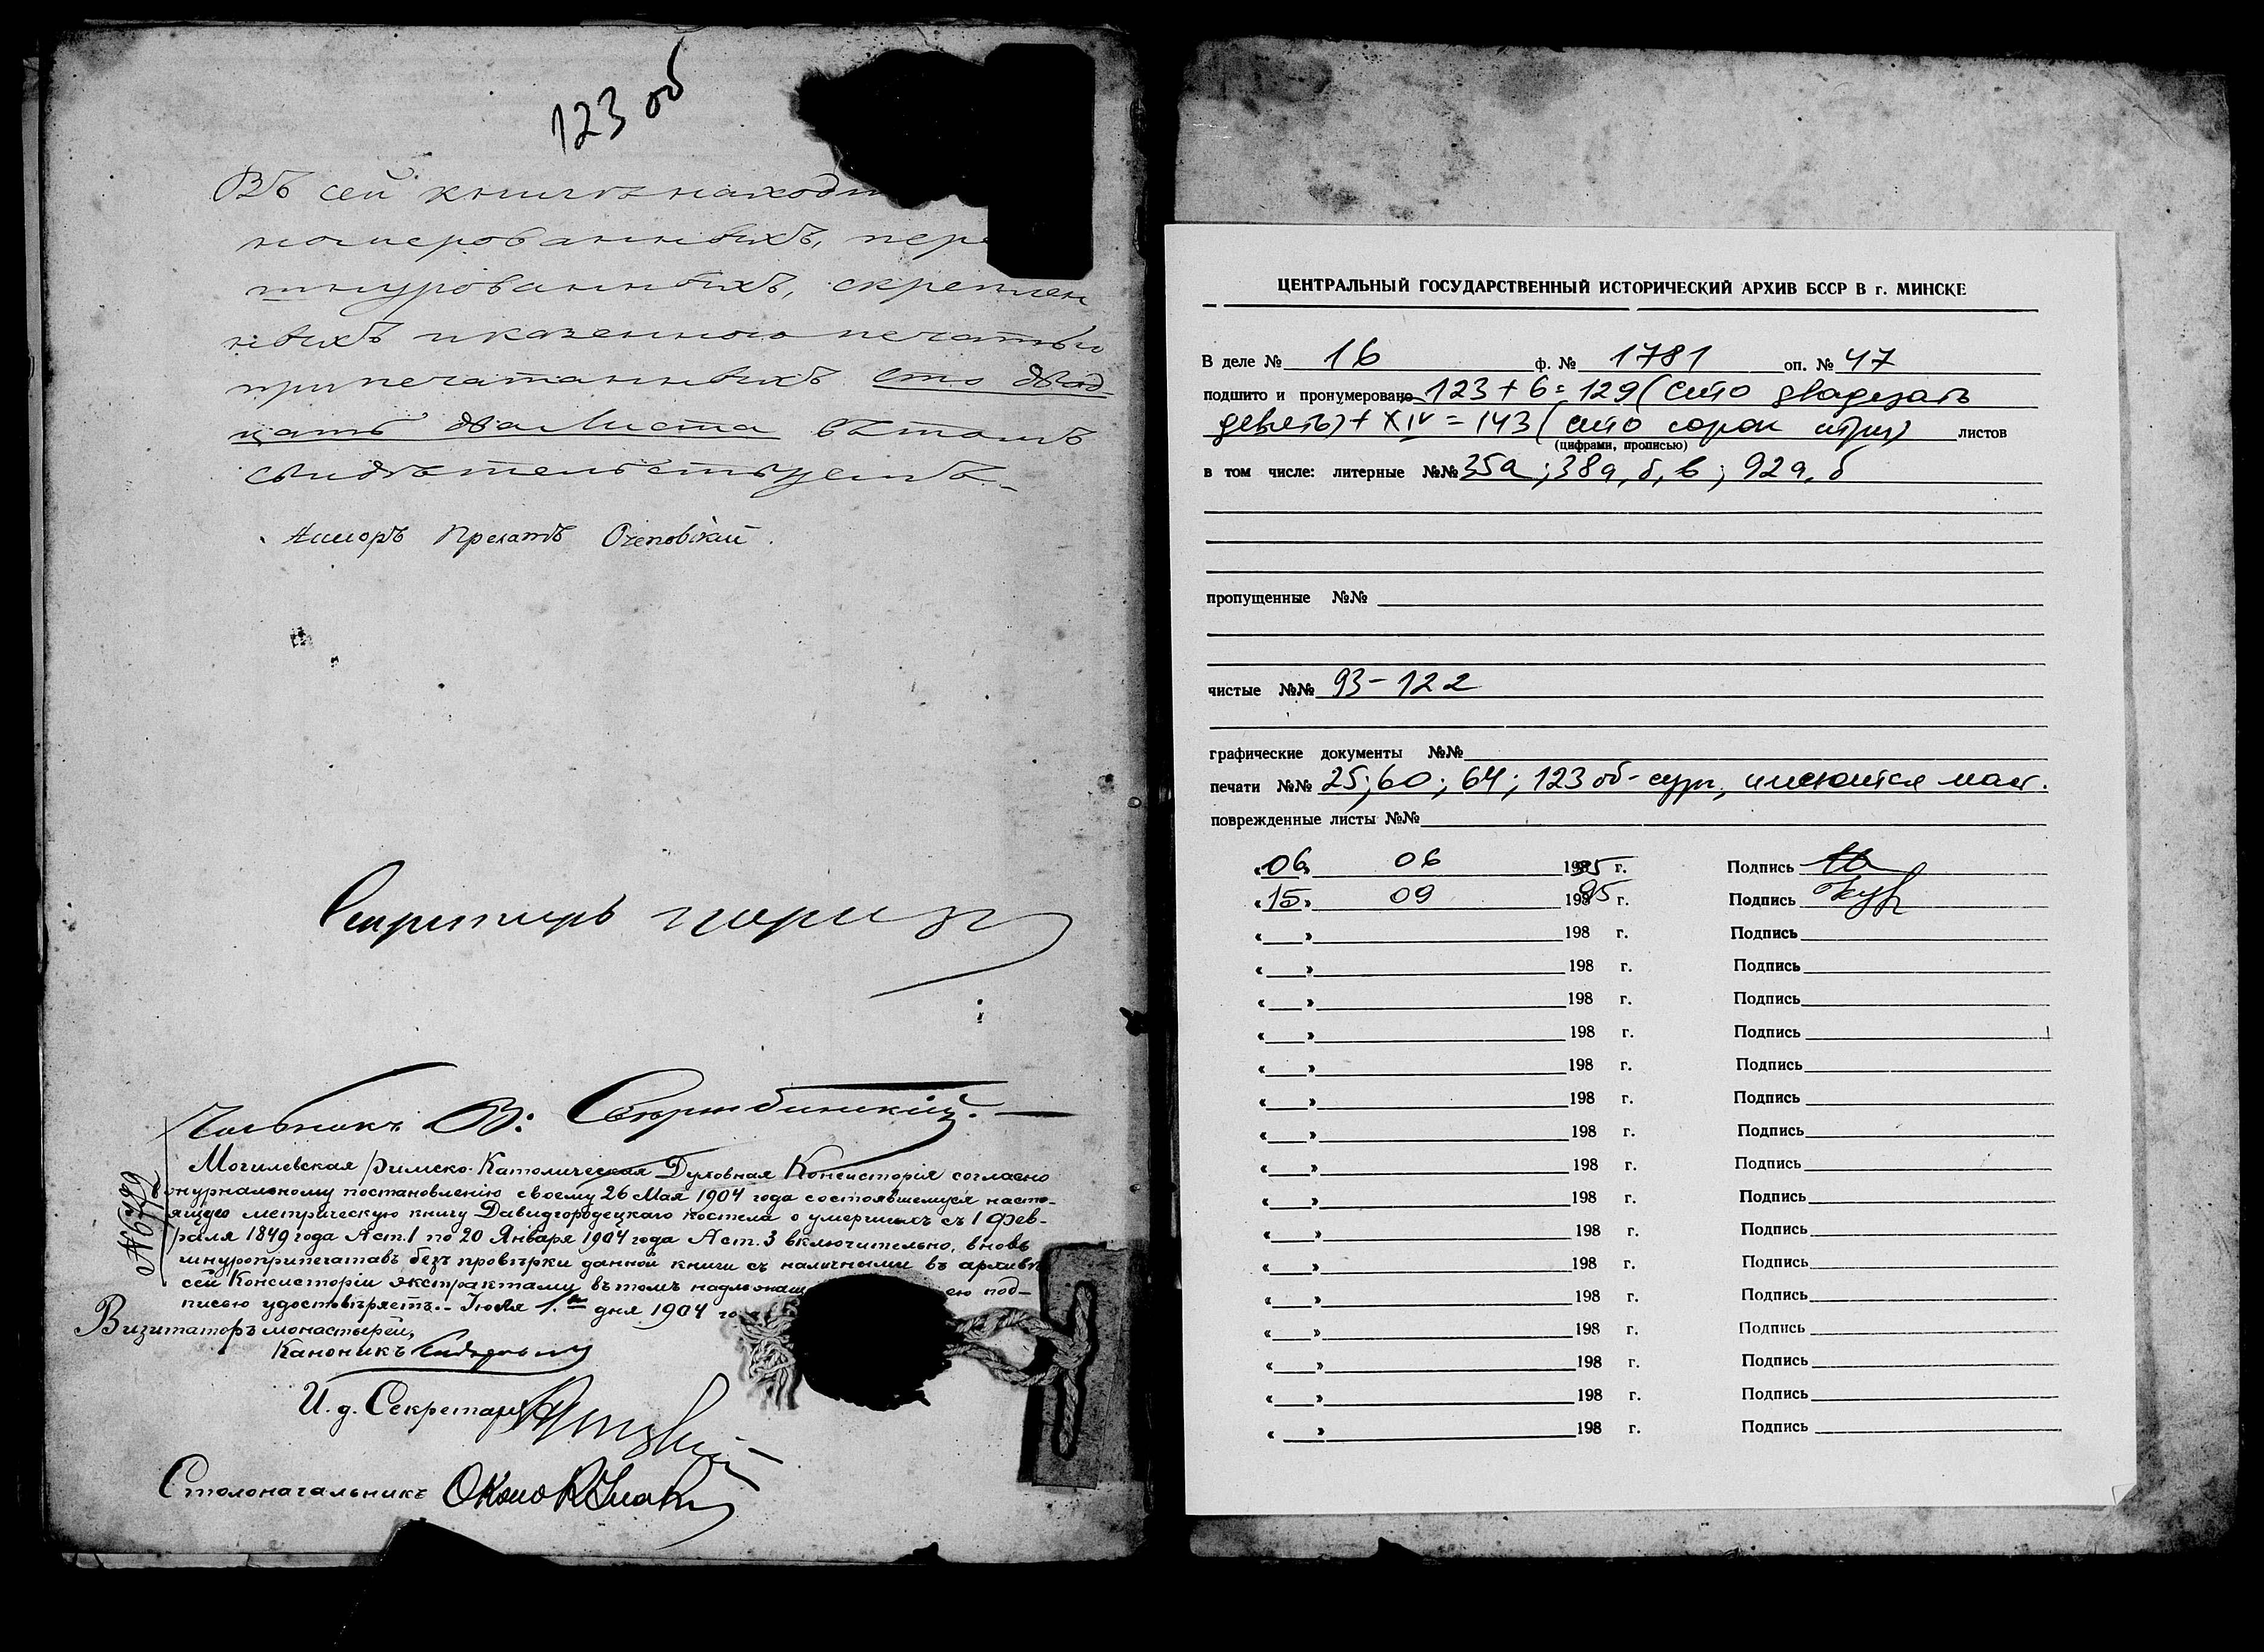 123 об
Въ сей книгѣ находи
номерованныхъ, пере
шнурованныхъ, скреплен
ныхъ и казенною печатью
припечатанныхъ сто двад
цать два листа въ томъ
свидѣтельствуемъ.
Асессоръ Прелатъ
Секретарь
В:
№6789
Могилевская Римско-Католическая Духовная Консисторія согласно
журнальному постановленію своему 26 Мая 1904 года состоявшемуся насто-
ящую метрическую книгу Давидгородецкаго костела о умершихъ съ 1 Фев-
раля 1849 года Аст. 1 по 20 Января 1904 года Аст. 3 включительно, вновь
шнуроприпечатавъ безъ провѣрки данной книги съ наличными въ архивѣ
сей Консисторіи экстрактами, въ томъ надлежащ ею под-
писью удостовѣряетъ. Іюля 1.го дня 1904 го
Визитаторъ монастырей,
Каноникъ
И. д. Секретаря
Столоначальникъ
ЦЕНТРАЛЬНЫЙ ГОСУДАРСТВЕННЫЙ ИСТОРИЧЕСКИЙ АРХИВ БССР В г. МИНСКЕ
В деле № 16 ф. № 1781 оп. № 47
подшито и пронумеровано 123 + 6 = 129 (сто двадцать
девять) + XIV = 143 (сто сорок три) листов
(цифрами, прописью)
в том числе: литерные №№ 35а; 38а, б, в; 92а, б
пропущенные №№
чистые №№ 93-122
графические документы №№
печати №№ 25; 60; 64; 123 об - сург., имеются маст.
поврежденные листы №№
«06» 06 1985 г. Подпись
«15» 09 1995 г. Подпись
«___» 198 г. Подпись
«___» 198 г. Подпись
«___» 198 г. Подпись
«___» 198 г. Подпись
«___» 198 г. Подпись
«___» 198 г. Подпись
«___» 198 г. Подпись
«___» 198 г. Подпись
«___» 198 г. Подпись
«___» 198 г. Подпись
«___» 198 г. Подпись
«___» 198 г. Подпись
«___» 198 г. Подпись
«___» 198 г. Подпись
«___» 198 г. Подпись
«___» 198 г. Подпись